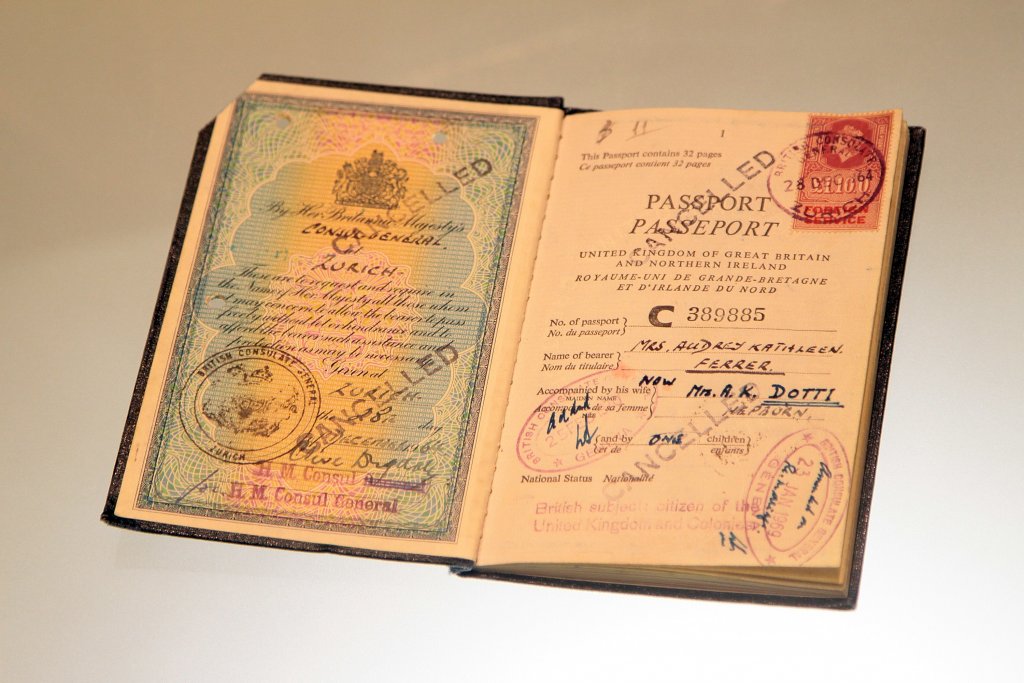 By Her Britannic Majesty's
CONSUL-GENERAL
at
ZURICH
These are to request and require in
the Name of Her Majesty all those whom
it may concern to allow the bearer to pass
freely without let or hindrance and to
afford the bearer such assistance and
protection as may be necessary.
Given at
ZURICH
day
DECEMBER, 1964
H. M. Consul General
H. M. Consul General
BRITISH CONSULATE GENERAL
ZURICH
CANCELLED
CANCELLED
11
1
This Passport contains 32 pages
Ce passeport contient 32 pages
BRITISH CONSULATE GENERAL
28 DEC 1964
ZURICH
FOREIGN
SERVICE
PASSPORT
PASSEPORT
CANCELLED
UNITED KINGDOM OF GREAT BRITAIN
AND NORTHERN IRELAND
ROYAUME-UNI DE GRANDE-BRETAGNE
ET D'IRLANDE DU NORD
No. of passport
No. du passeport
C 389885
Name of bearer
Nom du titulaire
MRS. AUDREY KATHLEEN.
FERRER.
NOW Mrs. A. K. DOTTI
Accompanied by his wife
MAIDEN NAME
NÉE
Accompagné de sa femme
HEPBURN.
(and by ONE children)
(et de enfants)
CANCELLED
BRITISH CONSULATE
National Status Nationalité
British subject: citizen of the
United Kingdom and Colonies.
BRITISH CONSULATE GENERAL
23 JAN 1969
GENEVA